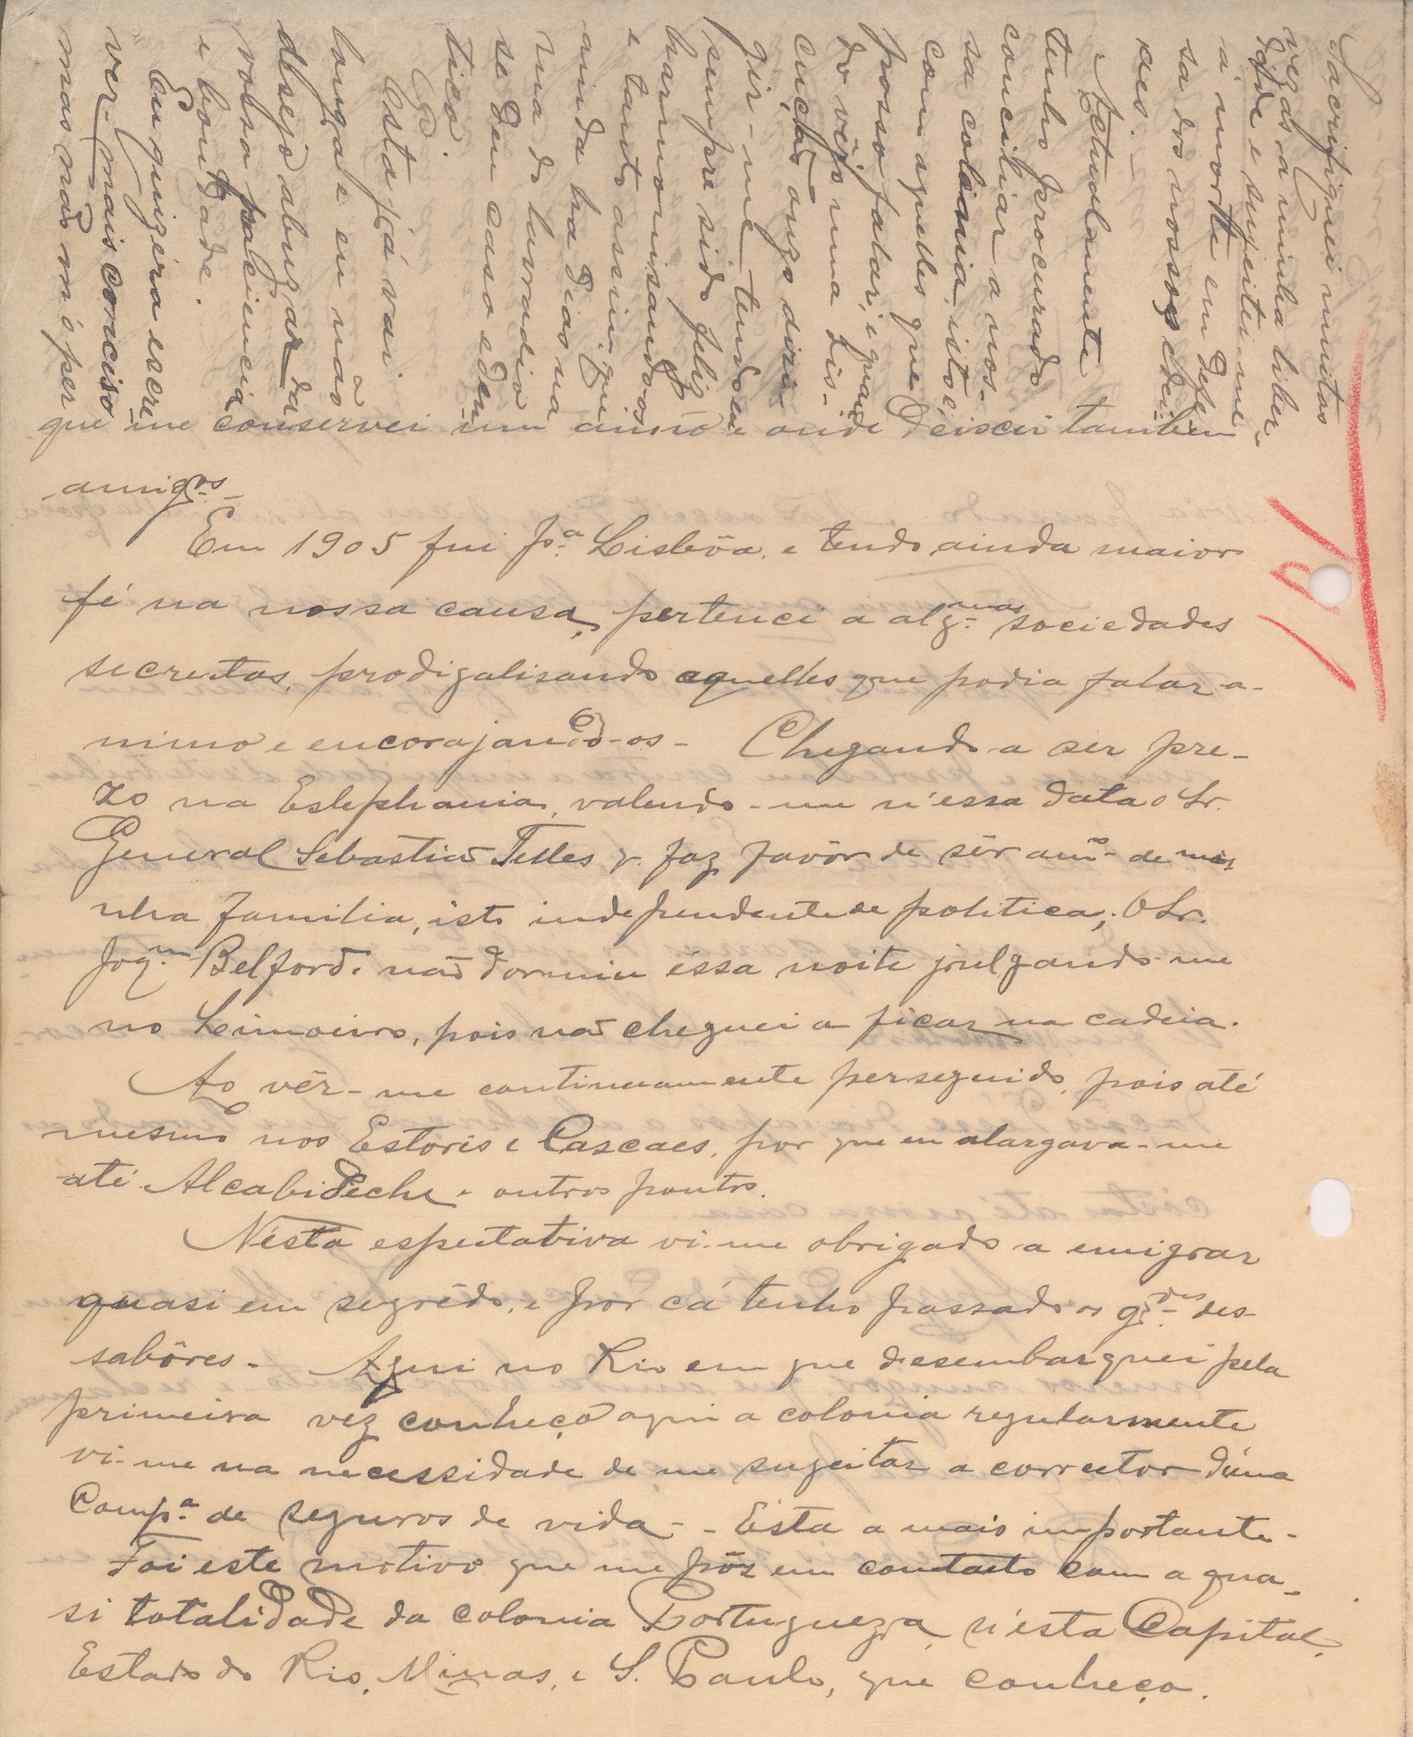 que me conservei um anno e onde deixei tambem
amigos
Em 1905 fui pa. Lisbôa, e tendo ainda maior
fé na nossa causa, pertenci a algumas sociedades
secretas, prodigalisando aquelles que podia falar a-
nimo e encorajando-os - Chegando a ser pre-
zo na Estephania, valendo-me n'essa data o Sr.
General Sebastião Telles q. faz favôr de sêr amo. de mi-
nha familia, isto independente de politica; O Sr.
Joqm. Belford. não dormiu essa noite julgando-me
no Limoeiro, pois não cheguei a ficar na cadeia.
Ao vêr-me continuamente perseguido, pois até
mesmo nos Estoris e Cascaes, por que eu alargava-me
até Alcabideche e outros pontos.
N'ésta espectativa vi-me obrigado a emigrar
quasi em segrêdo, e por cá tenho passado os gdes. des-
sabôres - Aqui no Rio em que desembarquei pela
primeira vez conheço aqui a colonia regularmente
vi-me na necessidade de me sugeitar a corrector d'uma
Compa. de seguros de vida - Ésta a mais importante -
Foi este motivo que me pôz em contacto com a qua-
si totalidade da colonia Portugueza, n'ésta Capital,
Estado do Rio, Minas, e S. Paulo, que conheço.
Sacrifiquei muitas
vezes a minha liber-
dade e sugeitei-me
á morte em defe-
sa dos nossos ide-
aes. -
Actualmente
tenho procurado
conciliar a nos-
sa colonia, isto é
com aquelles que
posso falar, e quan-
do vêjo uma dis-
cução ouço diri-
gir-me tendo eu
sempre sido feliz
harmonisando-os
e tanto assim que
ainda ha dias na
rua do Lavradio
se deu caso eden-
tico.
Esta já vai
longa e eu não
desejo abuzar da
vossa paciencia
e bondade.
Eu quizéra escre-
ver-mais conciso
mas não m'o per